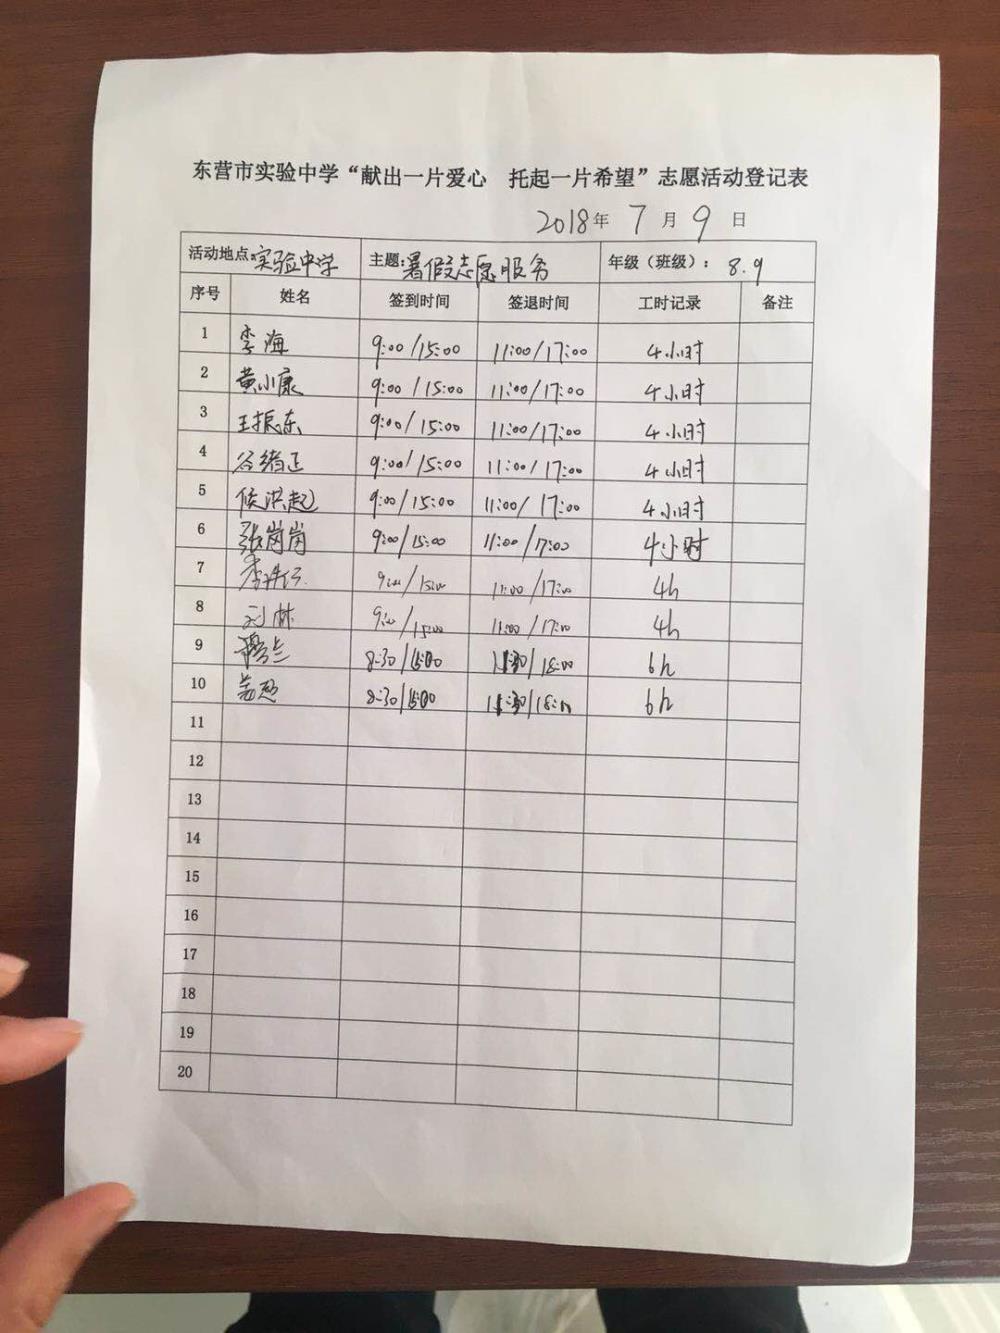 东营市实验中学“献出一片爱心 托起一片希望”志愿活动登记表
2018年 7 月 9 日
活动地点:实验中学 主题:暑假志愿服务 年级（班级）: 8.9
序号 姓名 签到时间 签退时间 工时记录 备注
1 李海 9:00/15:00 11:00/17:00 4小时
2 黄小康 9:00/15:00 11:00/17:00 4小时
3 王振东 9:00/15:00 11:00/17:00 4小时
4 谷绪正 9:00/15:00 11:00/17:00 4小时
5 侯洪起 9:00/15:00 11:00/17:00 4小时
6 张岗岗 9:00/15:00 11:00/17:00 4小时
7 9:00/15:00 11:00/17:00 4h
8 刘林 9:00/15:00 11:00/17:00 4h
9 8:30/15:00 11:30/18:00 6h
10 8:30/15:00 11:30/18:00 6h
11
12
13
14
15
16
17
18
19
20